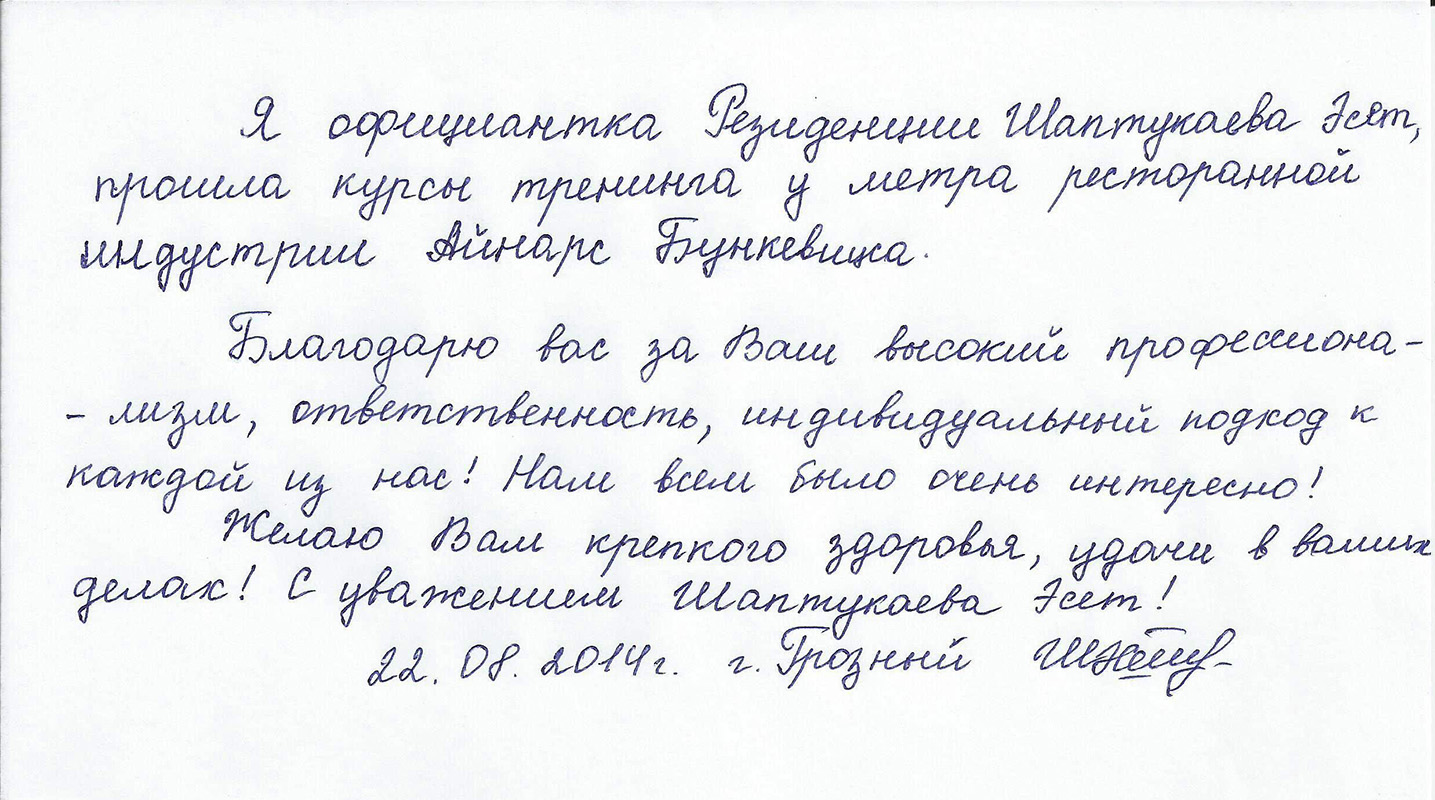 Я официантка Резиденции Шаптукаева Эсет,
прошла курсы тренинга у метра ресторанной
индустрии Айнарс Бункевица.
Благодарю вас за Ваш высокий профессиона-
- лизм, ответственность, индивидуальный подход к
каждой из нас! Нам всем было очень интересно!
Желаю Вам крепкого здоровья, удачи в ваших
делах! С уважением Шаптукаева Эсет!
22.08.2014г. г. Грозный